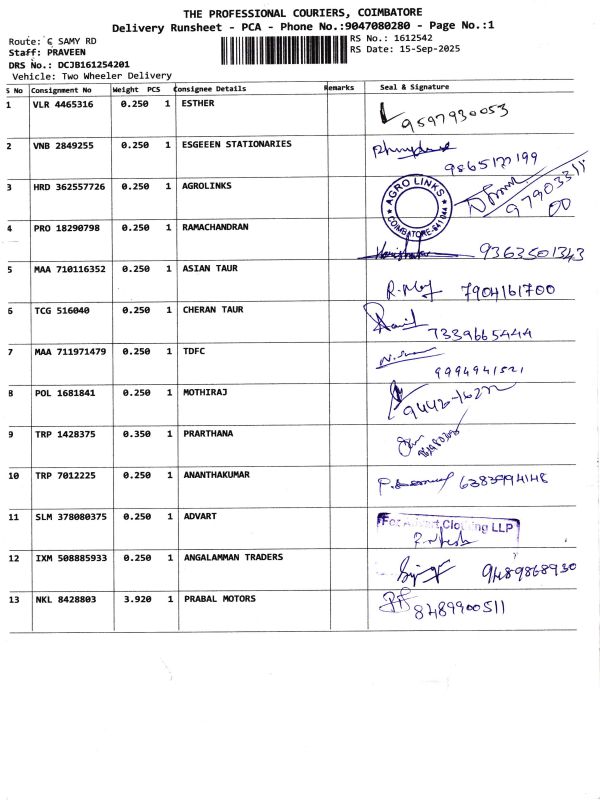 THE PROFESSIONAL COURIERS, COIMBATORE
Delivery Runsheet - PCA - Phone No.:9047080280 - Page No.:1
Route: C SAMY RD
RS No.: 1612542
Staff: PRAVEEN
RS Date: 15-Sep-2025
DRS No.: DCJB161254201
Vehicle: Two Wheeler Delivery
S No Consignment No Weight PCS Consignee Details Remarks Seal & Signature
1 VLR 4465316 0.250 1 ESTHER 9597930053
2 VNB 2849255 0.250 1 ESGEEEN STATIONARIES 9865177199
3 HRD 362557726 0.250 1 AGROLINKS AGRO LINKS COIMBATORE-641044 97903311 00
4 PRO 18290798 0.250 1 RAMACHANDRAN 9363501343
5 MAA 710116352 0.250 1 ASIAN TAUR 7904161700
6 TCG 516040 0.250 1 CHERAN TAUR 7339665444
7 MAA 711971479 0.250 1 TDFC 9994941521
8 POL 1681841 0.250 1 MOTHIRAJ
9 TRP 1428375 0.350 1 PRARTHANA
10 TRP 7012225 0.250 1 ANANTHAKUMAR 6383994148
11 SLM 378080375 0.250 1 ADVART For Advart Clothing LLP
12 IXM 508885933 0.250 1 ANGALAMMAN TRADERS 9489868930
13 NKL 8428803 3.920 1 PRABAL MOTORS 8489900511